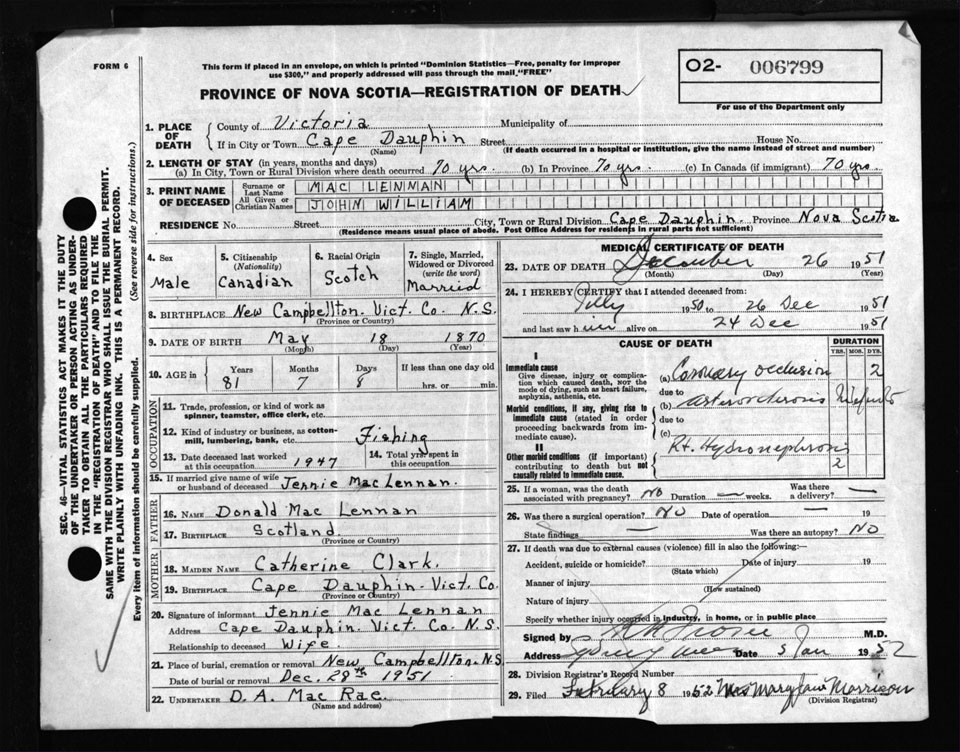 FORM 6
This form if placed in an envelope, on which is printed "Dominion Statistics—Free, penalty for improper
use $300," and properly addressed will pass through the mail "FREE"
O2- 006799
For use of the Department only
PROVINCE OF NOVA SCOTIA—REGISTRATION OF DEATH
1. PLACE OF DEATH
County of Victoria Municipality of
If in City or Town Cape Dauphin Street House No.
(Name) (If death occurred in a hospital or institution, give the name instead of street and number)
2. LENGTH OF STAY (in years, months and days)
(a) In City, Town or Rural Division where death occurred 70 yrs. (b) In Province 70 yrs. (c) In Canada (if immigrant) 70 yrs.
3. PRINT NAME OF DECEASED
Surname or Last Name MAC LENNAN
All Given or Christian Names JOHN WILLIAM
RESIDENCE No. Street City, Town or Rural Division Cape Dauphin. Province Nova Scotia
(Residence means usual place of abode. Post Office Address for residents in rural parts not sufficient)
4. Sex
Male
5. Citizenship
(Nationality)
Canadian
6. Racial Origin
Scotch
7. Single, Married,
Widowed or Divorced
(write the word)
Married
8. BIRTHPLACE New Campbellton. Vict. Co. N.S.
(Province or Country)
9. DATE OF BIRTH May 18 1870
(Month) (Day) (Year)
10. AGE in Years Months Days If less than one day old
81 7 8 hrs. or min.
OCCUPATION
11. Trade, profession, or kind of work as
spinner, teamster, office clerk, etc.
12. Kind of industry or business, as cotton-
mill, lumbering, bank, etc. Fishing
13. Date deceased last worked
at this occupation 1947
14. Total yrs. spent in
this occupation
15. If married give name of wife
or husband of deceased Jennie MacLennan.
FATHER
16. NAME Donald Mac Lennan
17. BIRTHPLACE Scotland.
(Province or Country)
MOTHER
18. MAIDEN NAME Catherine Clark.
19. BIRTHPLACE Cape Dauphin. Vict. Co.
(Province or Country)
20. Signature of informant Jennie Mac Lennan
Address Cape Dauphin. Vict. Co. N.S.
Relationship to deceased Wife.
21. Place of burial, cremation or removal New Campbellton. N.S
Date of burial or removal Dec. 28th 1951
22. UNDERTAKER D. A. Mac Rae.
(Name and address)
MEDICAL CERTIFICATE OF DEATH
23. DATE OF DEATH December 26 1951
(Month) (Day) (Year)
24. I HEREBY CERTIFY that I attended deceased from:
July 1950 to 26 Dec 1951
and last saw him alive on 24 Dec 1951
CAUSE OF DEATH
DURATION
YRS. MOS. DYS.
I
Immediate cause
Give disease, injury or complica-
tion which caused death, not the
mode of dying, such as heart failure,
asphyxia, asthenia, etc.
(a) Coronary occlusion 2
due to
Morbid conditions, if any, giving rise to
immediate cause (stated in order
proceeding backwards from im-
mediate cause).
(b)
due to
(c)
II
Other morbid conditions (if important)
contributing to death but not
causally related to immediate cause.
Rt. Hydronephrosis
2
25. If a woman, was the death
associated with pregnancy? No Duration — weeks.
Was there
a delivery? —
26. Was there a surgical operation? NO Date of operation — 19
State findings — Was there an autopsy? NO
27. If death was due to external causes (violence) fill in also the following:—
Accident, suicide or homicide? Date of injury 19
(State which)
Manner of injury
(How sustained)
Nature of injury
Specify whether injury occurred in industry, in home, or in public place
Signed by M.D.
Address Date 5 Jan 1952
28. Division Registrar's Record Number
29. Filed February 8 1952 Mrs Mary Jane Morrison
(Division Registrar)
SEC. 46—VITAL STATISTICS ACT MAKES IT THE DUTY
OF THE UNDERTAKER OR PERSON ACTING AS UNDER-
TAKER TO OBTAIN ALL THE PARTICULARS REQUIRED
IN THE "REGISTRATION OF DEATH" AND TO FILE THE
SAME WITH THE DIVISION REGISTRAR WHO SHALL ISSUE THE BURIAL PERMIT.
WRITE PLAINLY WITH UNFADING INK. THIS IS A PERMANENT RECORD.
Every item of information should be carefully supplied. (See reverse side for instructions.)